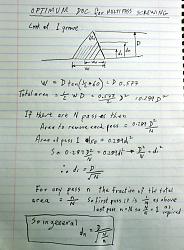 OPTIMUM DOC for MULTIPASS SCREWING
Look at 1 groove
D
W = D tan(½·60) = D 0.577
Total area = ½ W D = 0.577/2 D² = 0.289 D²
If there are N passes then
Area to remove each pass = 0.289 D²/N
Area of pass 1 also = 0.289 d₁²
So 0.289 D²/N = 0.289 d₁² → D²/N = d₁²
∴ d₁ = D/√N
For any pass n the fraction of the total
area = n/N so first pass it is 1/N as above
last pass n=N so N/N = 1 as required
So in general
dn = D√n/√N